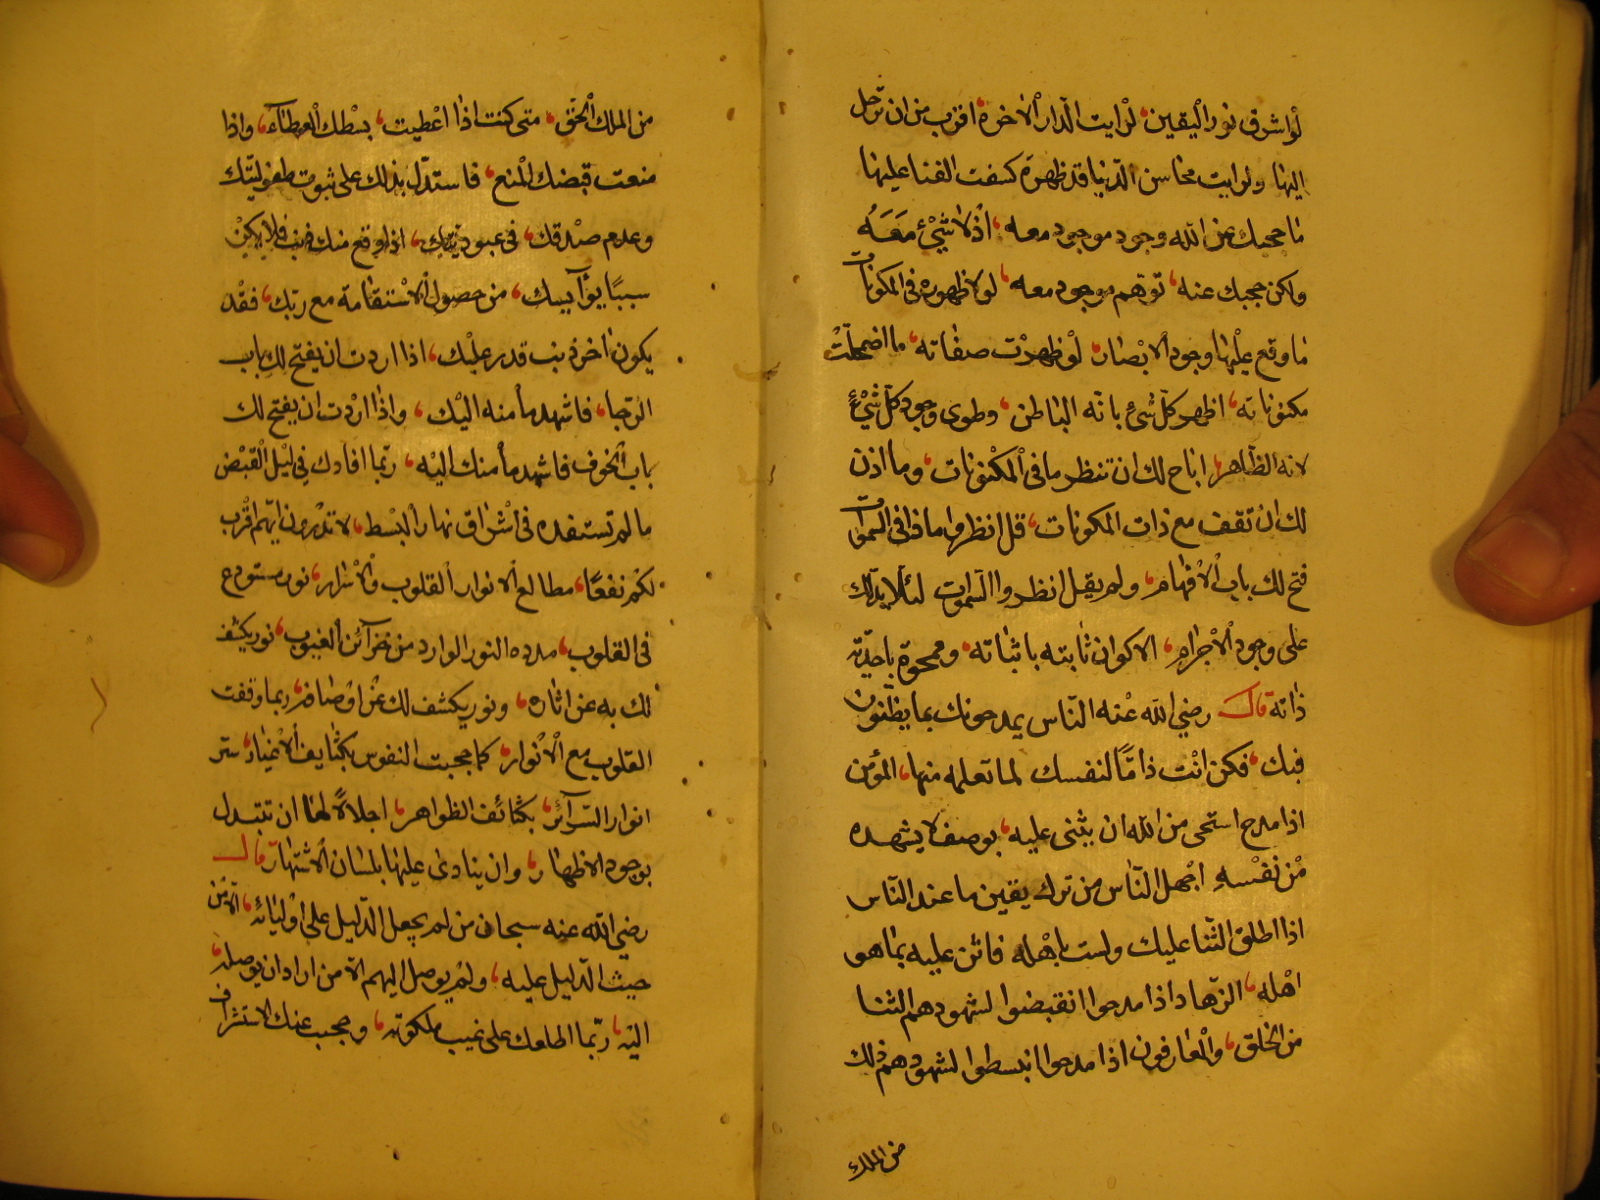 لو اشرق نور اليقين لرايت الدار الاخرة اقرب من ان ترحل
اليها ولرايت محاسن الدنيا قد ظهرة كسفت الفنا عليها
ما حجبك عن الله وجود موجود معه اذ لا شيء معه
ولكن حجبك عنه توهم موجود معه لولا ظهوره في المكونات
ما وقع عليها وجود الابصار لو ظهرت صفاته ما اضمحلت
مكنوناته اظهر كل شيء بانه الباطن وطوى وجود كل شيء
لانه الظاهر اباح لك ان تنظر ما في المكنونات وما اذن
لك ان تقف مع ذات المكونات قل انظروا ماذا في السموات
فتح لك باب الافهام ولم يقل انظروا السموات لئلا يدلك
على وجود الاجرام الاكوان ثابته باثباته وممحوة باحديّة
ذاته قال رضي الله عنه الناس يمدحونك بما يظنون
فيك فكن انت ذامّا لنفسك لما تعلمه منها المؤمن
اذا مدح استحى من الله ان يثنى عليه بوصف لا يشهده
من نفسه اجهل الناس من ترك يقين ما عند الناس
اذا اطلق الثنا عليك ولست باهله فاثن عليه بما هو
اهله الزهاد اذا مدحوا انقبضوا لشهودهم الثنا
من الخلق والعارفون اذا مدحوا انبسطوا لشهودهم ذلك
من الملك
من الملك الحق متى كنت اذا اعطيت بسطك العطاء واذا
منعت قبضك المنع فاستدل بذلك على ثبوت طفوليتك
وعدم صدقك في عبوديتك اذا وقع منك ذنب فلا يكن
سببا يوآيسك من حصول الاستقامة مع ربك فقد
يكون اخر ذنب قدر عليك اذا اردت ان يفتح لك باب
الرجا فاشهد ما منه اليك واذا اردت ان يفتح لك
باب الخوف فاشهد ما منك اليه ربما افادك في ليل القبض
ما لم تستفده في اشراق نهار البسط لا تدرون ايهم اقرب
لكم نفعا مطالع الانوار القلوب والاسرار نور مستودع
في القلوب مدده النور الوارد من خزآئن الغيوب نور يكشف
لك به عن اثاره ونور يكشف لك عن اوصافه ربما وقفت
القلوب مع الانوار كما حجبت النفوس بكثايف الاغيار ستر
انوار السرآئر بكثائف الظواهر اجلالا لها ان تبتدل
بوجود الاظهار وان ينادى عليها بلسان الاشتهار قال
رضي الله عنه سبحان من لم يجعل الدليل على اوليائه الا من
حيث الدليل عليه ولم يوصل اليهم الا من اراد ان يوصله
اليه ربما اطلعك على غيب ملكوته وحجب عنك الاستشراف